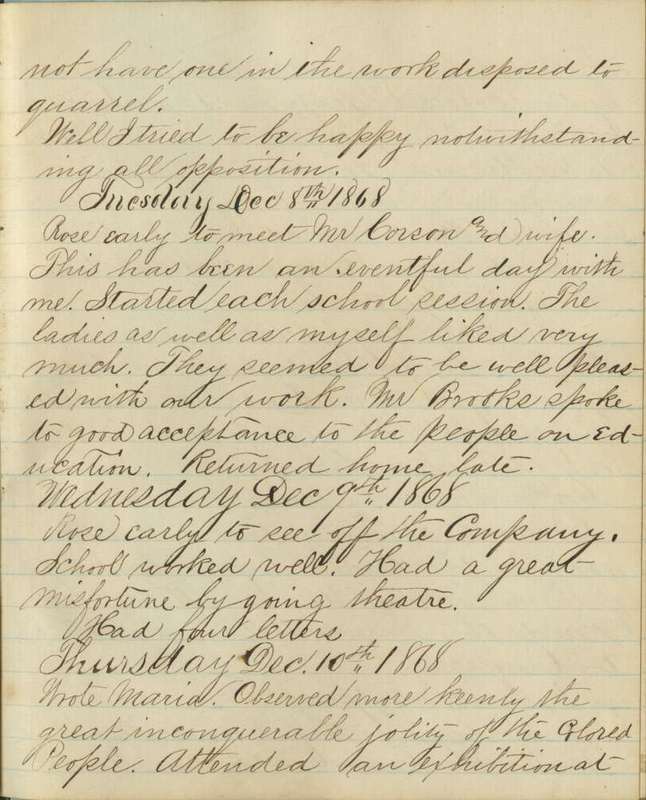 not have one in the work disposed to
quarrel.
Well I tried to be happy notwithstand-
ing all opposition.
Tuesday Dec 8th 1868
Rose early to meet Mr Corson and wife.
This has been an eventful day with
me. Started each school session. The
ladies as well as myself liked very
much. They seemed to be well pleas-
ed with our work. Mr Brooks spoke
to good acceptance to the people on Ed-
ucation. Returned home late.
Wednesday Dec 9th 1868
Rose early to see off the Company.
School worked well. Had a great
misfortune by going theatre.
Had four letters
Thursday Dec. 10th 1868
Wrote Maria. Observed more keenly the
great inconquerable jolity of the Colored
People. Attended an exhibition at